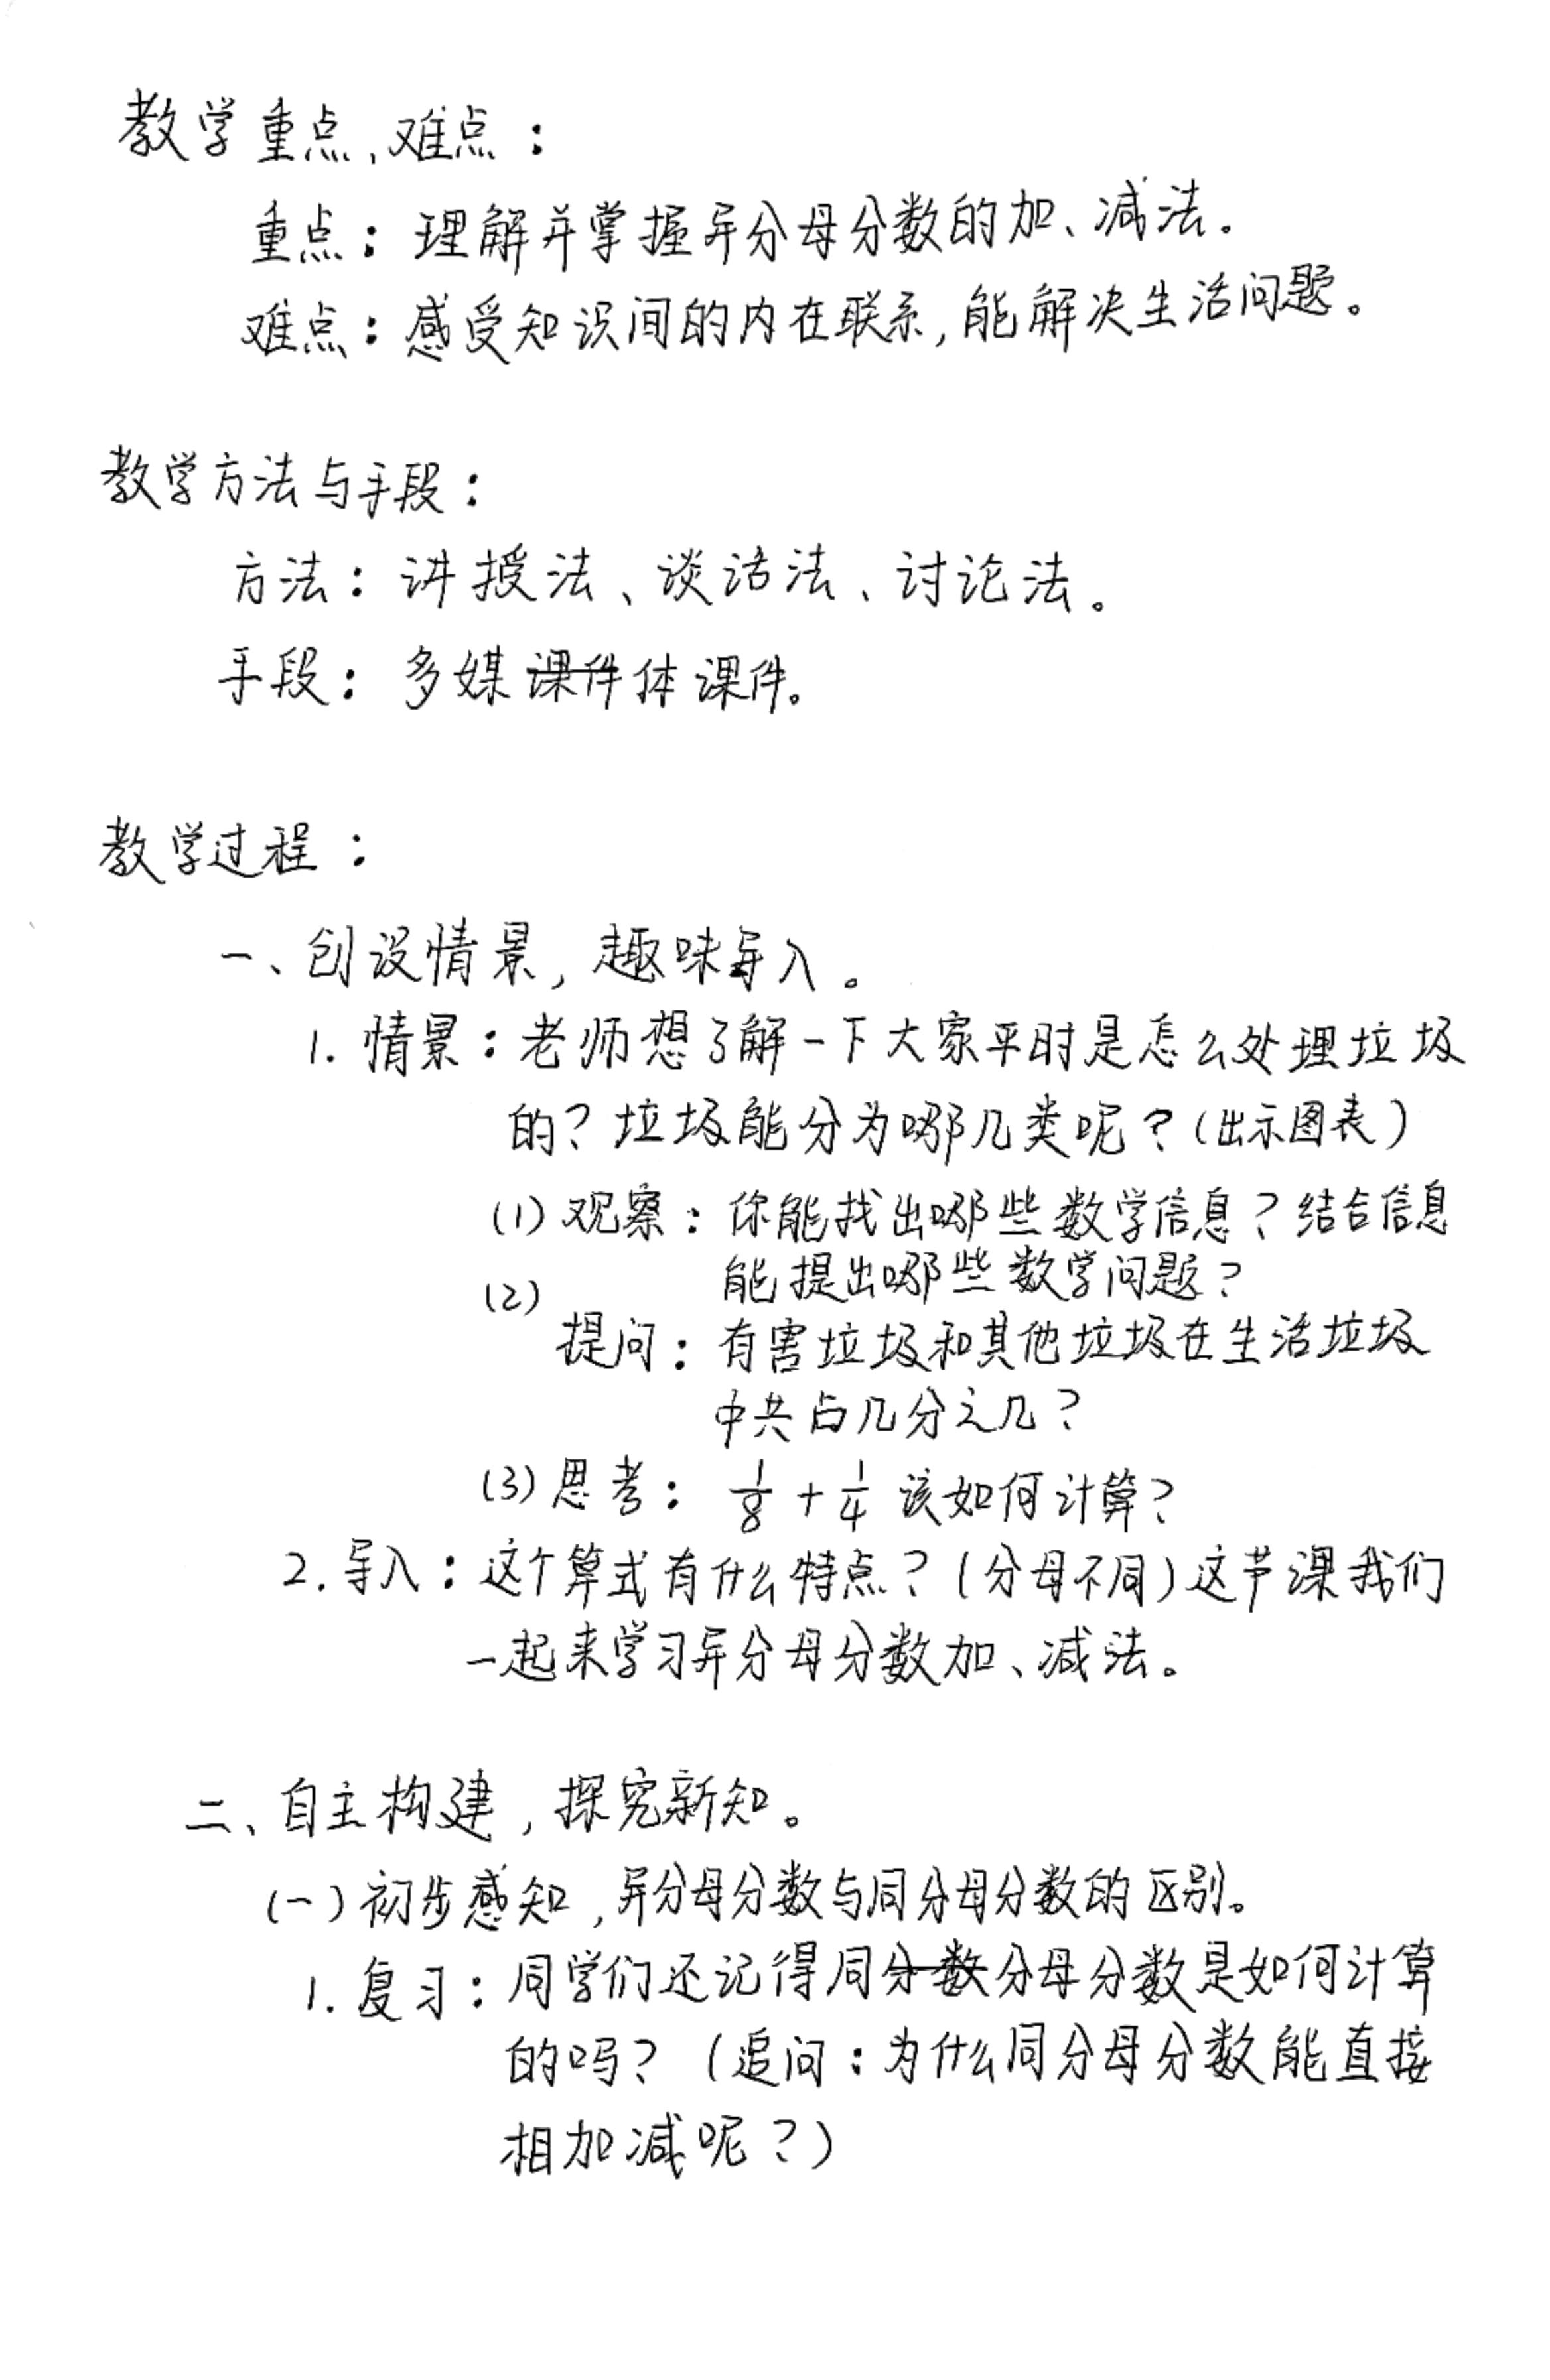 教学重点、难点：
重点：理解并掌握异分母分数的加、减法。
难点：感受知识间的内在联系，能解决生活问题。
教学方法与手段：
方法：讲授法、谈话法、讨论法。
手段：多媒课件体课件。
教学过程：
一、创设情景，趣味导入。
1. 情景：老师想了解一下大家平时是怎么处理垃圾
的？垃圾能分为哪几类呢？（出示图表）
(1) 观察：你能找出哪些数学信息？结合信息
能提出哪些数学问题？
(2)
提问：有害垃圾和其他垃圾在生活垃圾
中共占几分之几？
(3) 思考：1/8 + 1/4 该如何计算？
2. 导入：这个算式有什么特点？（分母不同）这节课我们
一起来学习异分母分数加、减法。
二、自主构建，探究新知。
(一) 初步感知，异分母分数与同分母分数的区别。
1. 复习：同学们还记得同分数分母分数是如何计算
的吗？（追问：为什么同分母分数能直接
相加减呢？）